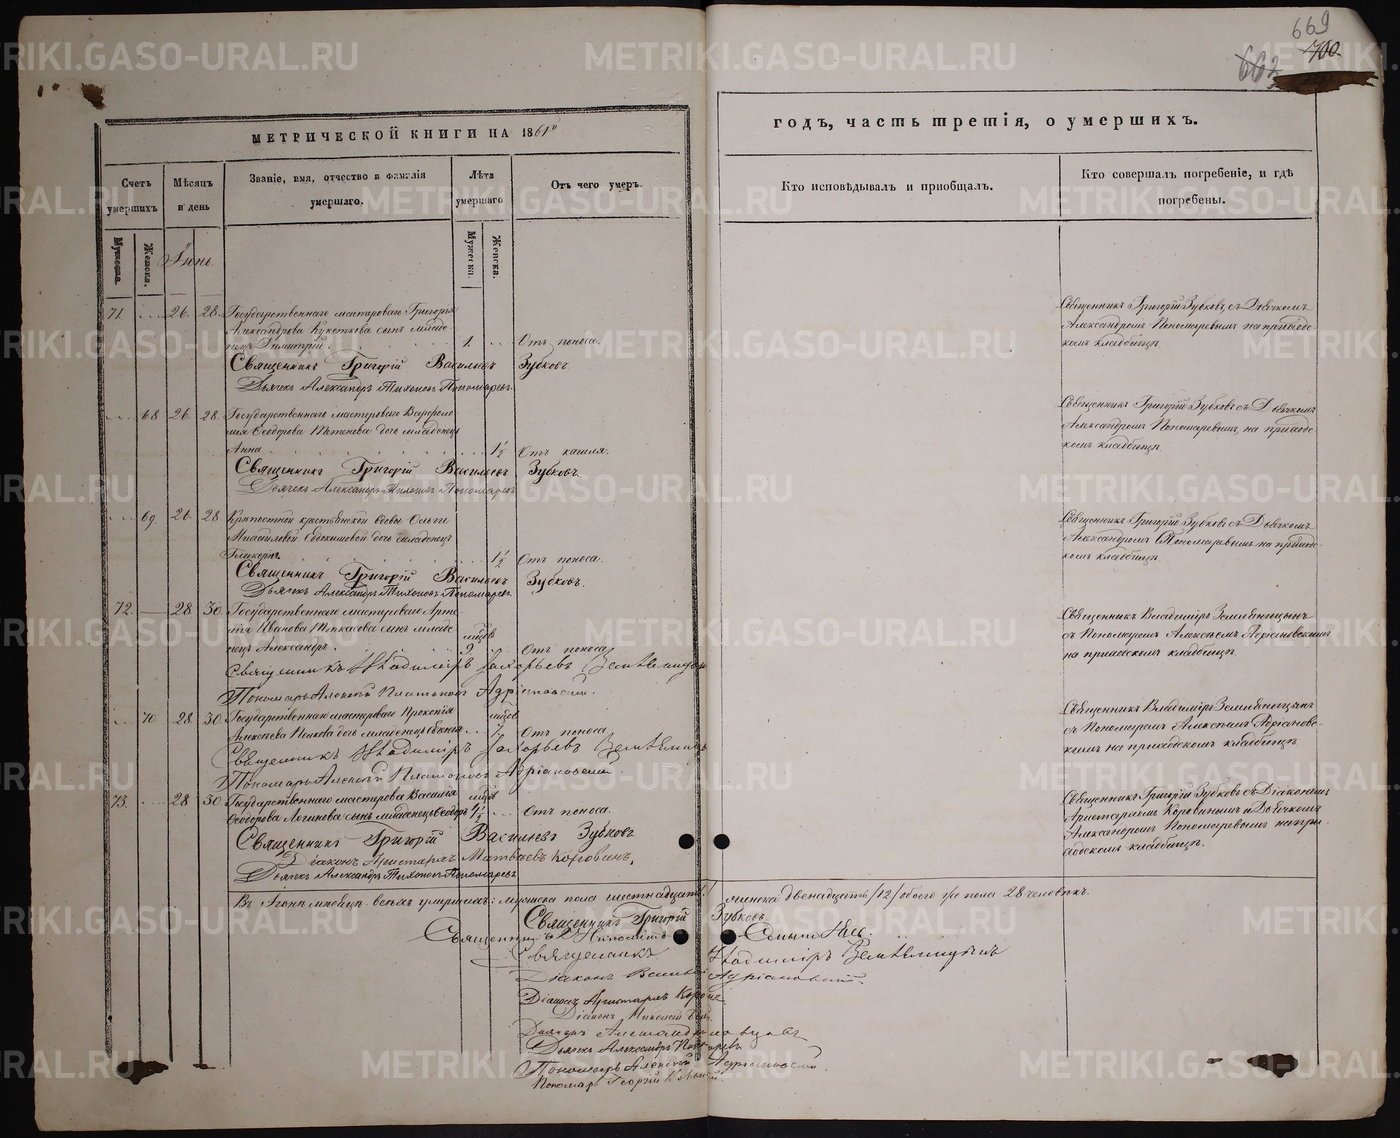 669
700.
663
МЕТРИЧЕСКОЙ КНИГИ НА 1861й
годъ, часть третія, о умершихъ.
Счетъ умершихъ
Мѣсяцъ и день
Званіе, имя, отчество и фамилія умершаго.
Лѣта умершаго
Отъ чего умеръ.
Кто исповѣдывалъ и пріобщалъ.
Кто совершалъ погребеніе, и гдѣ погребены.
Мужеска.
Женска.
Іюнь.
Мужеска.
Женска.
71. 26. 28. Государственнаго мастероваго Григорья
Александрова сынъ младе-
нецъ Димитрій. 1. Отъ поноса.
Священникъ Григорій Васильевъ Зубковъ.
Дьячекъ Александръ Тихоновъ Пономаревъ.
Священникъ Григорій Зубковъ, съ Дьячкомъ
Александромъ Пономаревымъ, на приход-
скомъ кладбищѣ.
68 26. 28. Государственнаго мастероваго Варфоло-
мея Ѳеодорова дочь младенецъ
Анна 1½ Отъ кашля.
Священникъ Григорій Васильевъ Зубковъ.
Дьячекъ Александръ Тихоновъ Пономаревъ.
Священникъ Григорій Зубковъ съ Дьячкомъ
Александромъ Пономаревымъ, на приход-
скомъ кладбищѣ.
69 26. 28. Крѣпостной крестьянской вдовы Ольги
Михайловой Евдокимовой дочь младенецъ
Гликерія 1½ Отъ поноса.
Священникъ Григорій Васильевъ Зубковъ.
Дьячекъ Александръ Тихоновъ Пономаревъ.
Священникъ Григорій Зубковъ съ Дьячкомъ
Александромъ Пономаревымъ на приход-
скомъ кладбищѣ.
72. 28. 30. Государственнаго мастероваго Арте-
мія Иванова сынъ младе-
нецъ Александръ. мѣсцов 9 Отъ поноса.
Священникъ Владиміръ Захарьевъ Земляницынъ
Пономарь Алексѣй Платоновъ Адріановскій.
Священникъ Владиміръ Земляницынъ
съ Пономаремъ Алексѣемъ Адріановскимъ
на приходскомъ кладбищѣ.
70 28. 30. Государственнаго мастероваго Прокопія
Алексѣева дочь младенецъ Евгенія мѣсцов 7 Отъ поноса.
Священникъ Владиміръ Захарьевъ Земляницынъ
Пономарь Алексѣй Платоновъ Адріановскій.
Священникъ Владиміръ Земляницынъ
съ Пономаремъ Алексѣемъ Адріановс-
кимъ на приходскомъ кладбищѣ
73. 28 30. Государственнаго мастероваго Василья
Ѳеодорова Логинова сынъ младенецъ Ѳеодоръ Отъ поноса.
Священникъ Григорій Васильевъ Зубковъ
Діаконъ Аристархъ Матвѣевъ Коровинъ,
Дьячекъ Александръ Тихоновъ Пономаревъ
Священникъ Григорій Зубковъ съ Діакономъ
Аристархомъ Коровинымъ и Дьячкомъ
Александромъ Пономаревымъ на при-
ходскомъ кладбищѣ.
Въ Іюнѣ мѣсяцѣ всѣхъ умершихъ: мужска пола шестнадцать, женска двенадцать /12/ обоего же пола 28 человѣкъ.
Священникъ Григорій Зубковъ
Священникъ Ипполитъ
Священникъ Владиміръ Земляницынъ
Діаконъ Василій Адріановскій.
Діаконъ Аристархъ Коровинъ
Діаконъ Николай
Дьячекъ Александръ Пономаревъ
Пономарь Алексѣй Адріановскій
Пономарь Георгій
METRIKI.GASO-URAL.RU